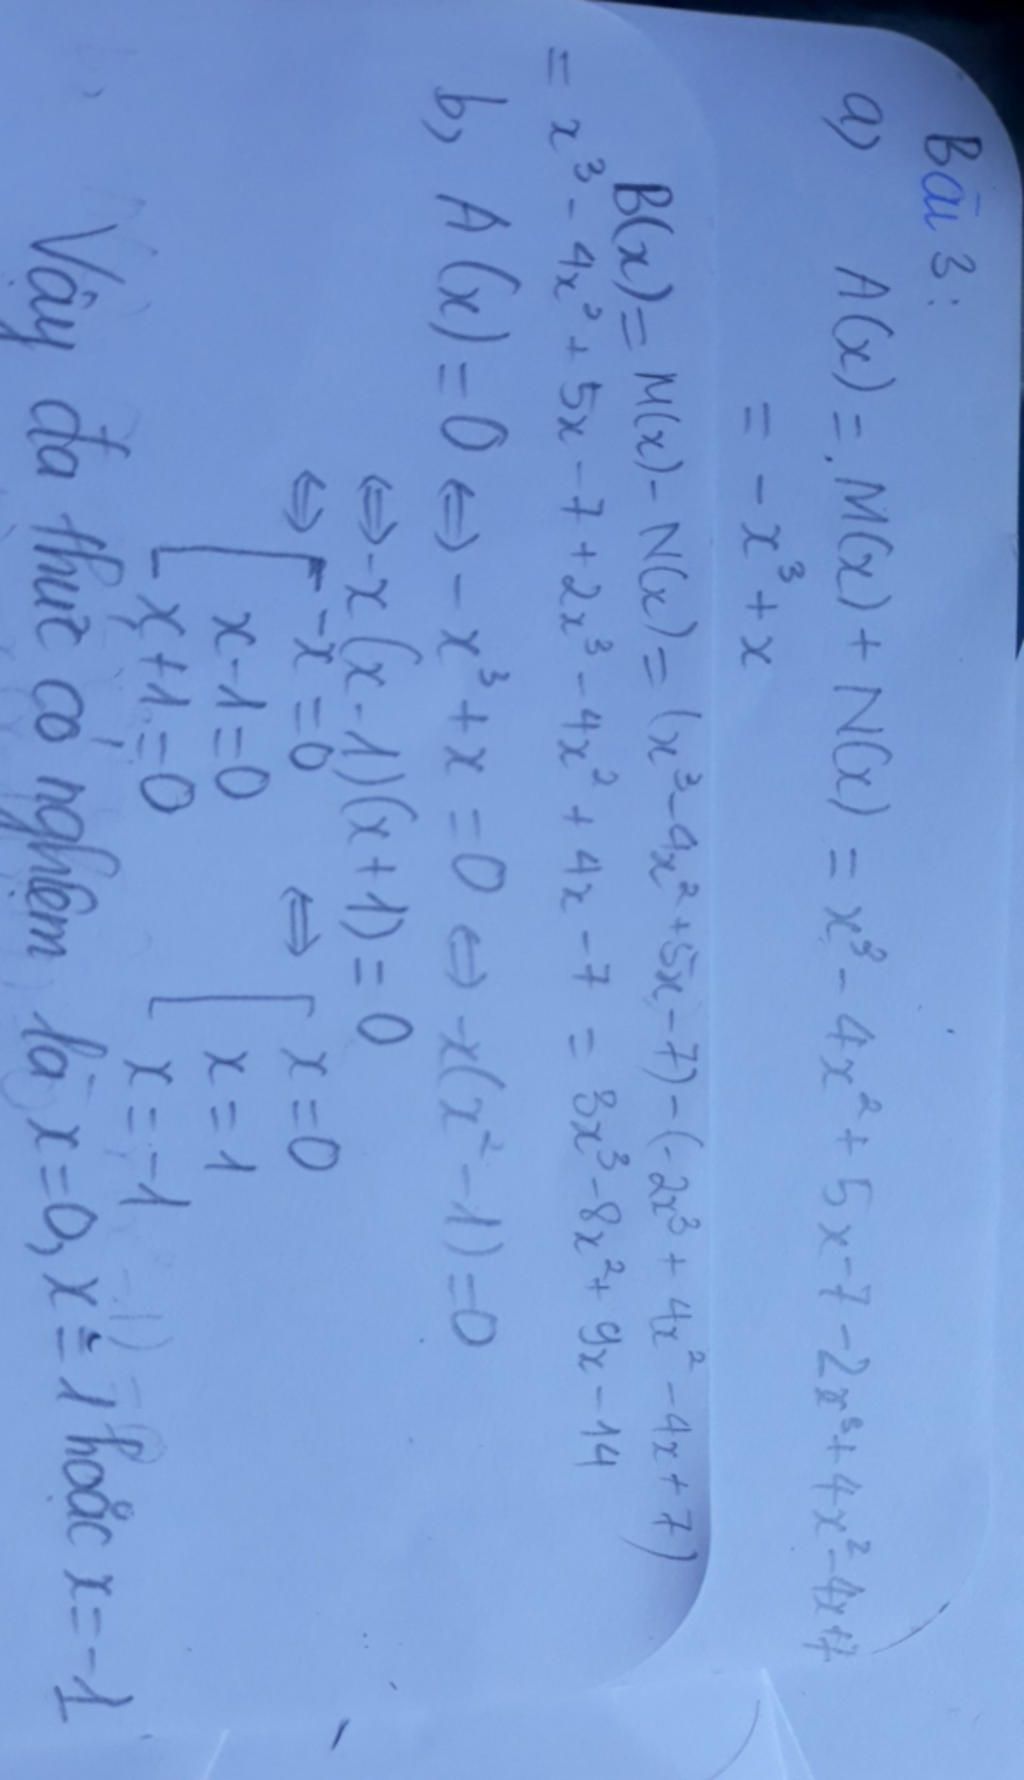 Bài 3:
a) A(x) = M(x) + N(x) = x³ - 4x² + 5x - 7 - 2x³ + 4x² - 4x + 7
= - x³ + x
B(x) = M(x) - N(x) = (x³ - 4x² + 5x - 7) - (-2x³ + 4x² - 4x + 7)
= x³ - 4x² + 5x - 7 + 2x³ - 4x² + 4x - 7 = 3x³ - 8x² + 9x - 14
b, A(x) = 0 ⇔ - x³ + x = 0 ⇔ -x(x² - 1) = 0
⇔ -x(x - 1)(x + 1) = 0
⇔ [ -x = 0 ⇔ [ x = 0
x - 1 = 0 x = 1
x + 1 = 0 x = -1
Vậy đa thức có nghiệm là x = 0, x = 1 hoặc x = -1